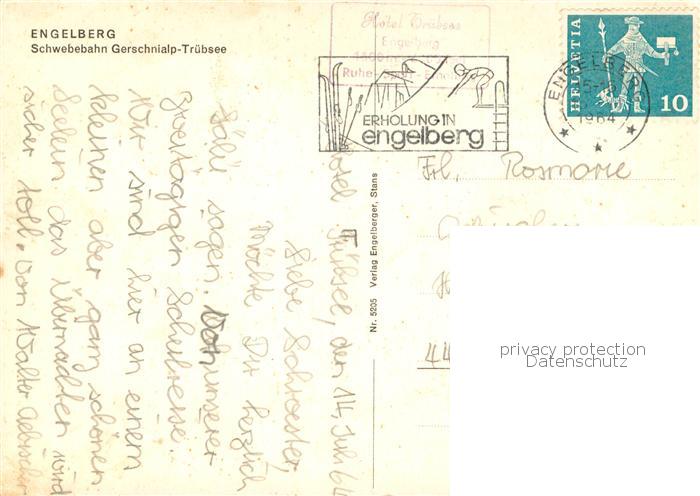 ENGELBERG
Schwebebahn Gerschnialp-Trübsee
Hotel Trübsee
Engelberg
Ruhe
ERHOLUNG IN
engelberg
ENGELBERG
1964
HELVETIA
10
Frl. Rosmarie
44
Nr. 5205 Verlag Engelberger, Stans
Hotel Trübsee, den 14. Juli 64
Liebe Schwester,
Möchte Dir herzlich
Salü sagen. Von unserer
zweitägigen Schulreise.
Wir sind hier an einem
kleinen aber ganz schönen
Seelein das Übernachten wird
sicher toll. Von Walter Aebischer
privacy protection
www.oldthing.com